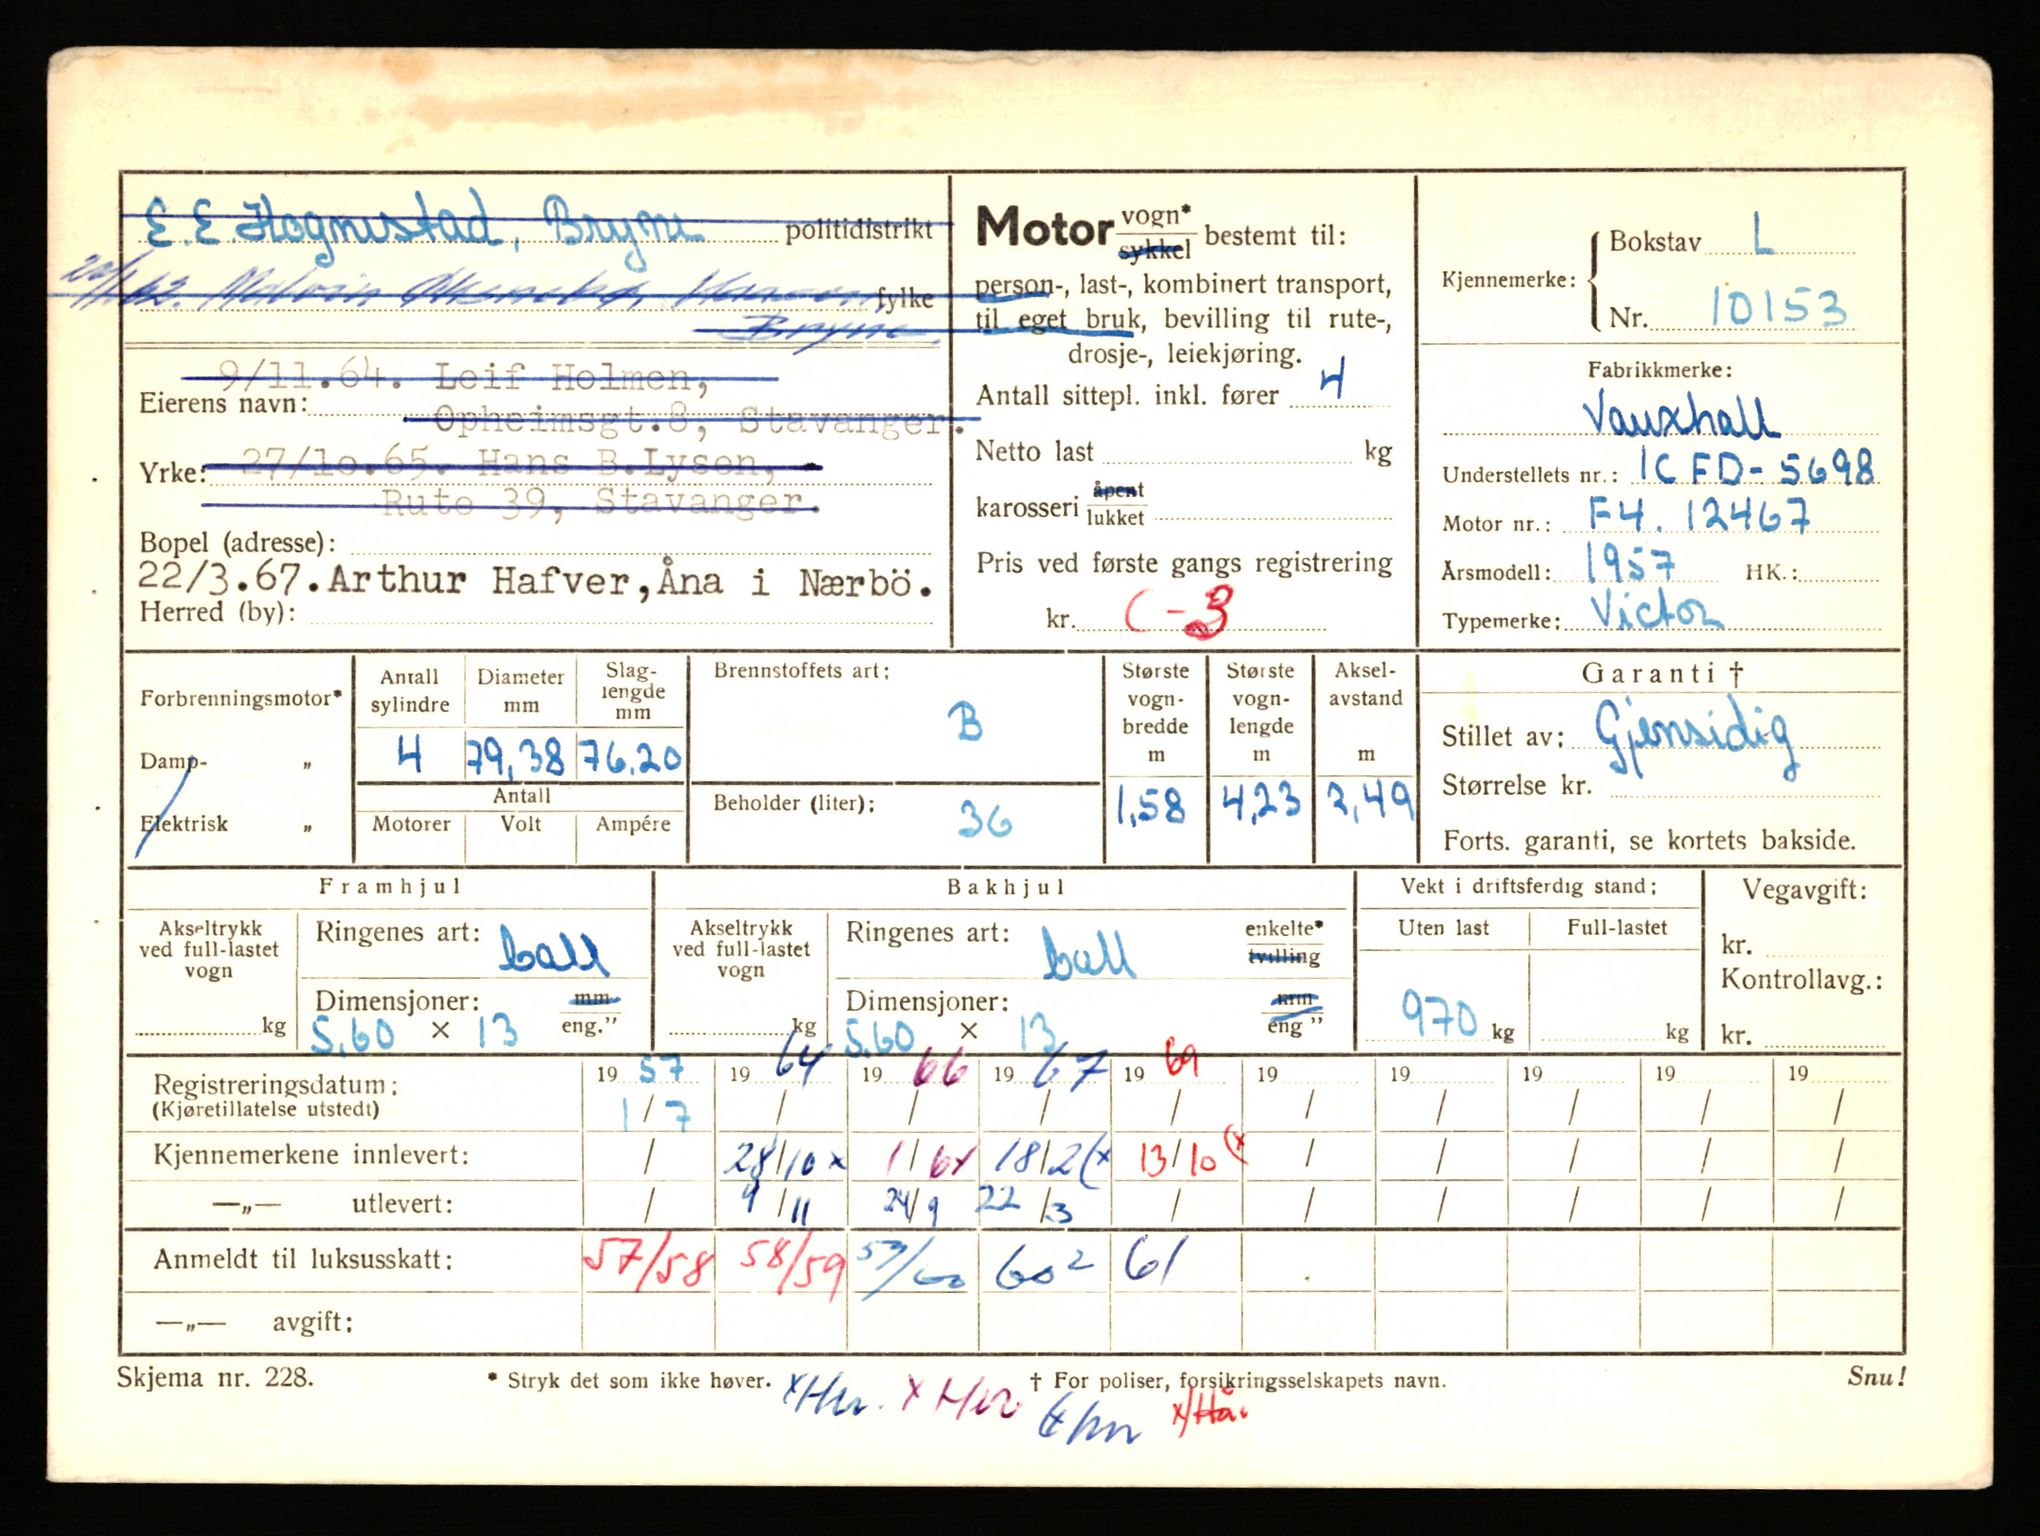 E. E. Hognestad, Bryne politidistrikt
fylke
Bryne.
9/11.64. Leif Holmen,
Eierens navn:
Opheimsgt.8, Stavanger.
Yrke: 27/10.65. Hans B.Lysen,
Rute 39, Stavanger.
Bopel (adresse):
22/3.67.Arthur Hafver,Åna i Nærbö.
Herred (by):
Motor vogn* sykkel bestemt til:
person-, last-, kombinert transport,
til eget bruk, bevilling til rute-,
drosje-, leiekjøring.
Antall sittepl. inkl. fører 4
Netto last kg
karosseri åpent lukket
Pris ved første gangs registrering
kr. C-3
Kjennemerke: Bokstav L
Nr. 10153
Fabrikkmerke:
Vauxhall
Understellets nr.: 1C FD-5698
Motor nr.: F4. 12467
Årsmodell: 1957 HK.:
Typemerke: Victor
Forbrenningsmotor*
Damp- „
Elektrisk „
Antall sylindre 4
Diameter mm 79,38
Slag-lengde mm 76.20
Antall
Motorer Volt Ampére
Brennstoffets art: B
Beholder (liter): 36
Største vogn-bredde m 1,58
Største vogn-lengde m 4,23
Aksel-avstand m 2,49
Garanti †
Stillet av: Gjensidig
Størrelse kr.
Forts. garanti, se kortets bakside.
Framhjul
Akseltrykk ved full-lastet vogn kg
Ringenes art: ball
Dimensjoner: mm eng.”
5.60 × 13
Bakhjul
Akseltrykk ved full-lastet vogn kg
Ringenes art: ball enkelte* tvilling
Dimensjoner: mm eng ”
5.60 × 13
Vekt i driftsferdig stand:
Uten last Full-lastet
970 kg kg
Vegavgift:
kr.
Kontrollavg.:
kr.
Registreringsdatum: 19 57 19 64 19 66 19 67 19 69 19 19 19 19 19
(Kjøretillatelse utstedt) 1/7 / / / / / / / / /
Kjennemerkene innlevert: / 28/10 x 1/6x 18/2(x 13/10(x / / / / /
—„— utlevert: / 9/11 24/9 22/3 / / / / / /
Anmeldt til luksusskatt: 57/58 58/59 59/60 60² 61
—„— avgift:
Skjema nr. 228. * Stryk det som ikke høver. † For poliser, forsikringsselskapets navn. Snu!
x/Hå.